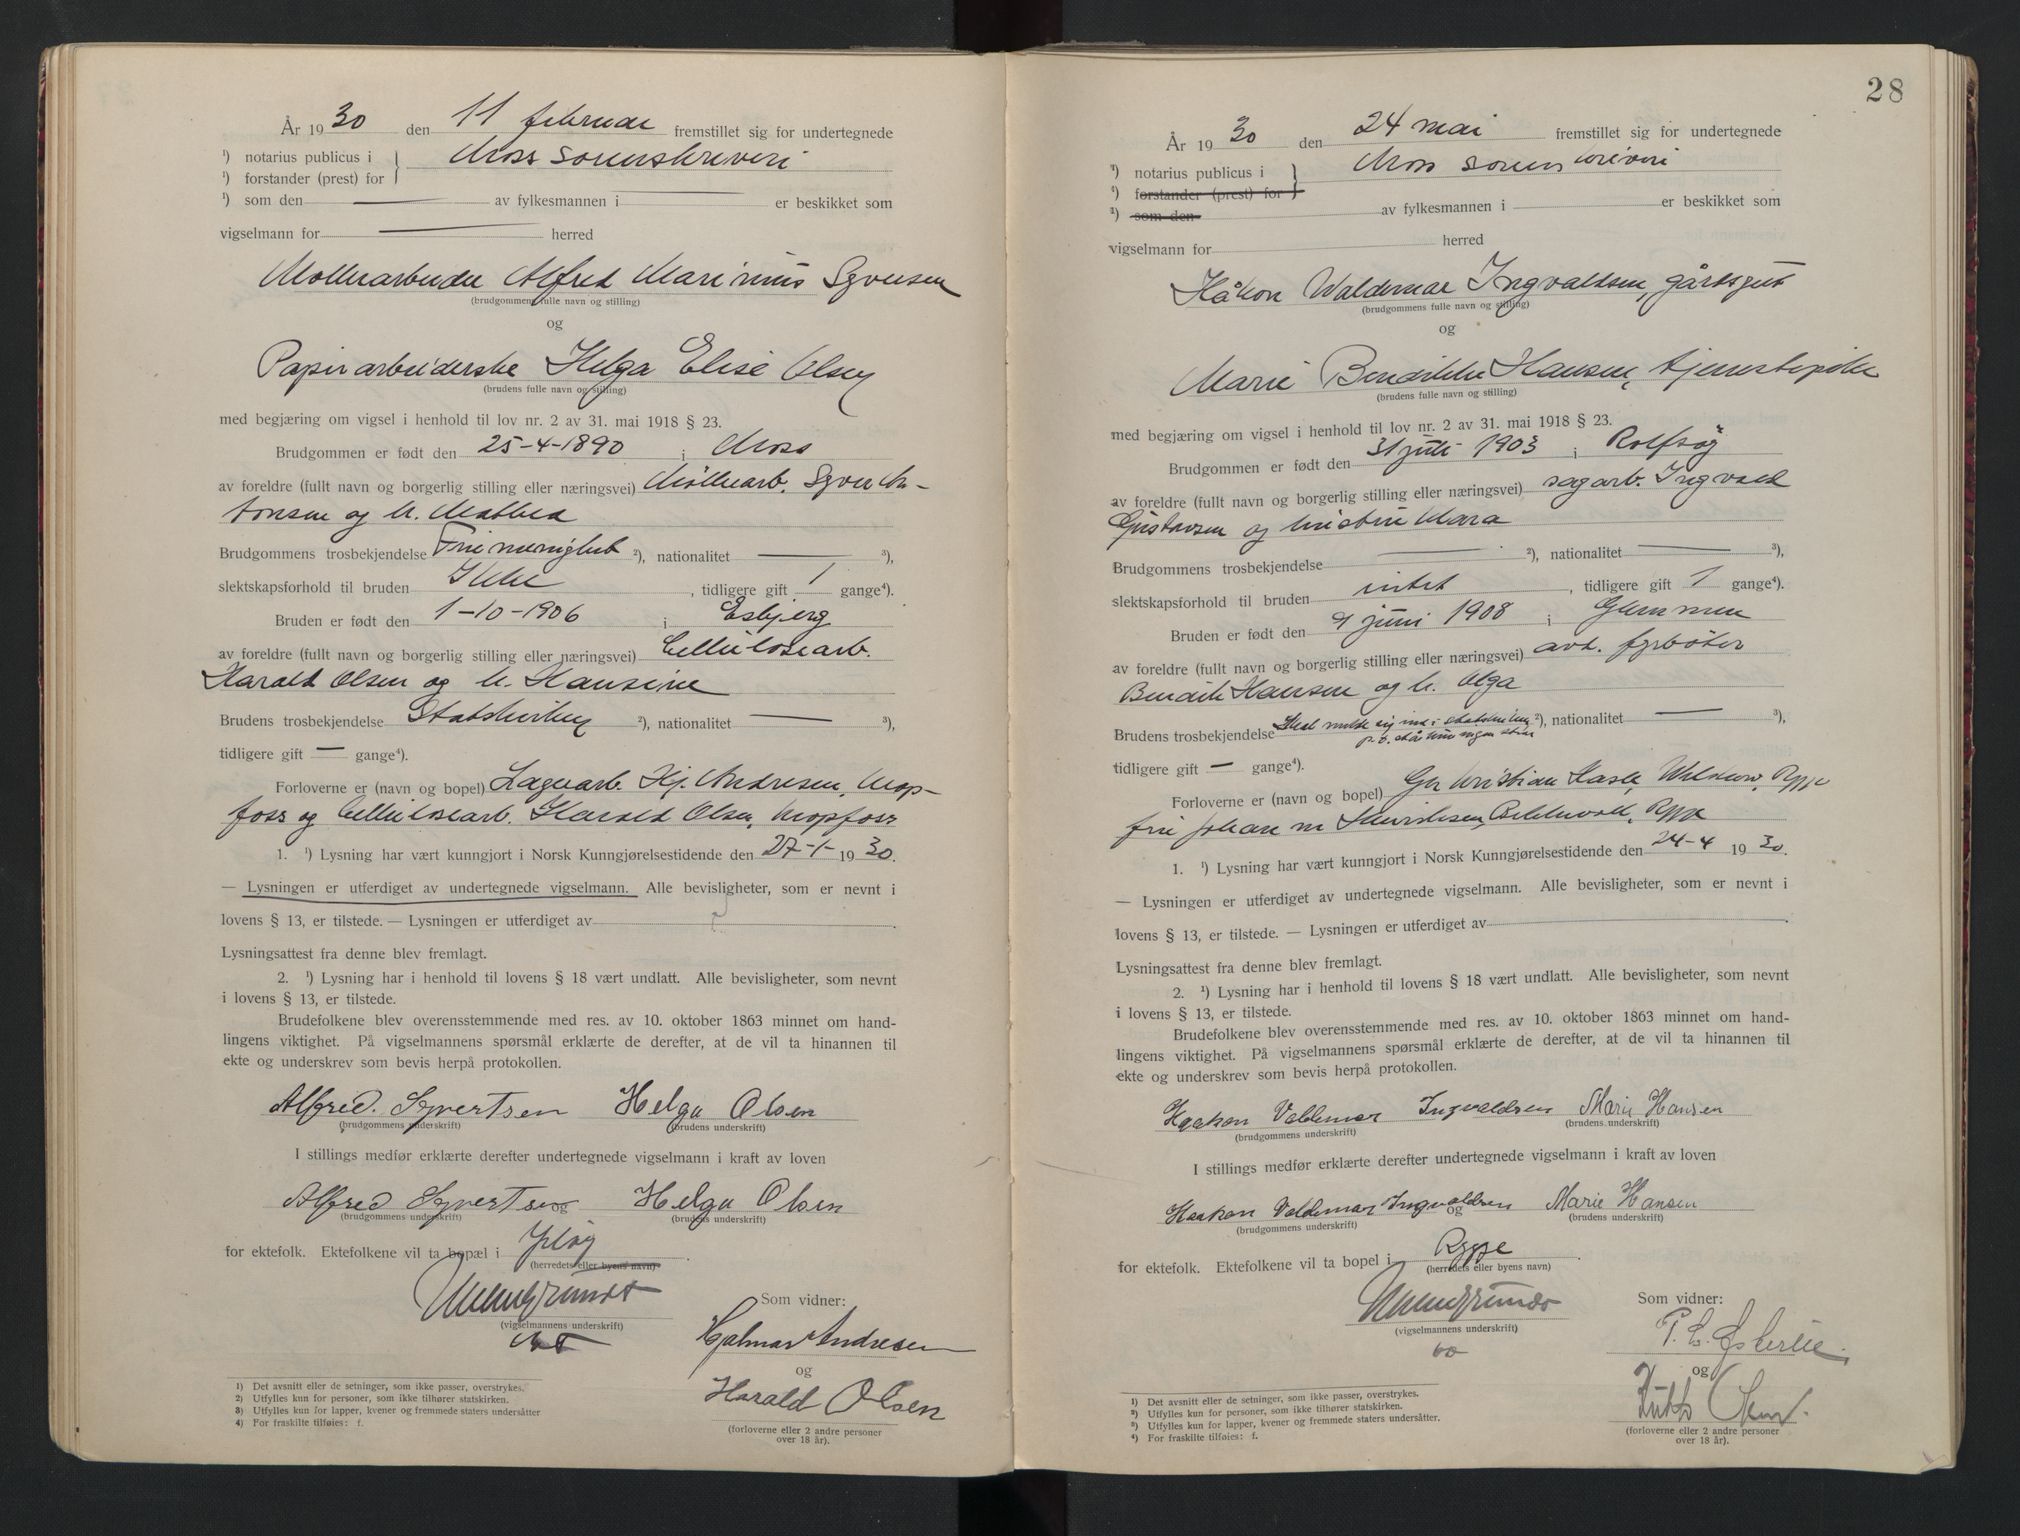 År 1930 den 11 februar fremstillet sig for undertegnede
¹) notarius publicus i } Moss sorenskriveri
¹) forstander (prest) for
¹) som den av fylkesmannen i er beskikket som
vigselmann for herred
Møllearbeider Alfred Marinius Syvertsen
(brudgommens fulle navn og stilling)
og
Papirarbeiderske Helga Elise Olsen
(brudens fulle navn og stilling)
med begjæring om vigsel i henhold til lov nr. 2 av 31. mai 1918 § 23.
Brudgommen er født den 25-4-1890 i Moss
av foreldre (fullt navn og borgerlig stilling eller næringsvei) Møllearb. Syver An-
tonsen og h. Mathea
Brudgommens trosbekjendelse Frimenighet ²), nationalitet — ³),
slektskapsforhold til bruden Ikke, tidligere gift 1 gange⁴).
Bruden er født den 1-10-1906 i Esbjerg
av foreldre (fullt navn og borgerlig stilling eller næringsvei) Cellulosearb.
Harald Olsen og h. Hansine
Brudens trosbekjendelse Statskirken ²), nationalitet — ³),
tidligere gift — gange⁴).
Forloverne er (navn og bopel) Lagerarb. Hj. Andresen, Krop-
foss og Cellulosearb. Harald Olsen, Kropfoss
1. ¹) Lysning har vært kunngjort i Norsk Kunngjørelsestidende den 27-1- 1930.
— Lysningen er utferdiget av undertegnede vigselmann. Alle bevisligheter, som er nevnt i
lovens § 13, er tilstede. — Lysningen er utferdiget av
Lysningsattest fra denne blev fremlagt.
2. ¹) Lysning har i henhold til lovens § 18 vært undlatt. Alle bevisligheter, som nevnt
i lovens § 13, er tilstede.
Brudefolkene blev overensstemmende med res. av 10. oktober 1863 minnet om hand-
lingens viktighet. På vigselmannens spørsmål erklærte de derefter, at de vil ta hinannen til
ekte og underskrev som bevis herpå protokollen.
Alfred. Syvertsen Helga Olsen
(brudgommens underskrift) (brudens underskrift)
I stillings medfør erklærte derefter undertegnede vigselmann i kraft av loven
Alfred Syvertsen og Helga Olsen
(brudgommens underskrift) (brudens underskrift)
for ektefolk. Ektefolkene vil ta bopæl i Jeløy.
(herredets eller byens navn)
Som vidner:
(vigselmannens underskrift)
Hjalmar Andresen
og
Harald Olsen
(forloverne eller 2 andre personer
over 18 år).
1) Det avsnitt eller de setninger, som ikke passer, overstrykes.
2) Utfylles kun for personer, som ikke tilhører statskirken.
3) Utfylles kun for lapper, kvener og fremmede staters undersåtter
4) For fraskilte tilføies: f.
28
År 1930 den 24 mai fremstillet sig for undertegnede
¹) notarius publicus i } Moss sorenskriveri
¹) forstander (prest) for
²) som den av fylkesmannen i er beskikket som
vigselmann for herred
Håkon Waldemar Ingvaldsen, gårdsgut
(brudgommens fulle navn og stilling)
og
Marie Bendikke Hansen, tjenestepike
(brudens fulle navn og stilling)
med begjæring om vigsel i henhold til lov nr. 2 av 31. mai 1918 § 23.
Brudgommen er født den 31 juli 1903 i Rolfsøy
av foreldre (fullt navn og borgerlig stilling eller næringsvei) sagarb. Ingvald
Gustavsen og hustru Klara
Brudgommens trosbekjendelse — ²), nationalitet — ³),
slektskapsforhold til bruden intet, tidligere gift 1 gange⁴).
Bruden er født den 9 juni 1908 i Glemmen
av foreldre (fullt navn og borgerlig stilling eller næringsvei) avd. fyrbøter
Bendik Hansen og h. Olga
Brudens trosbekjendelse Skal melde sig inn i statskirken ²), nationalitet — ³),
p.t. står hun ingen
tidligere gift — gange⁴).
Forloverne er (navn og bopel) Kristian Hasle, Rygge
fru Johanne Rygge
1. ¹) Lysning har vært kunngjort i Norsk Kunngjørelsestidende den 24-4 1930.
— Lysningen er utferdiget av undertegnede vigselmann. Alle bevisligheter, som er nevnt i
lovens § 13, er tilstede. — Lysningen er utferdiget av
Lysningsattest fra denne blev fremlagt.
2. ¹) Lysning har i henhold til lovens § 18 vært undlatt. Alle bevisligheter, som nevnt
i lovens § 13, er tilstede.
Brudefolkene blev overensstemmende med res. av 10. oktober 1863 minnet om hand-
lingens viktighet. På vigselmannens spørsmål erklærte de derefter, at de vil ta hinannen til
ekte og underskrev som bevis herpå protokollen.
Haakon Valdemar Ingvaldsen Marie Hansen
(brudgommens underskrift) (brudens underskrift)
I stillings medfør erklærte derefter undertegnede vigselmann i kraft av loven
Haakon Valdemar Ingvaldsen og Marie Hansen
(brudgommens underskrift) (brudens underskrift)
for ektefolk. Ektefolkene vil ta bopel i Rygge.
(herredets eller byens navn)
Som vidner:
(vigselmannens underskrift)
og
(forloverne eller 2 andre personer
over 18 år).
1) Det avsnitt eller de setninger, som ikke passer, overstrykes.
2) Utfylles kun for personer, som ikke tilhører statskirken.
3) Utfylles kun for lapper, kvener og fremmede staters undersåtter.
4) For fraskilte tilføies: f.